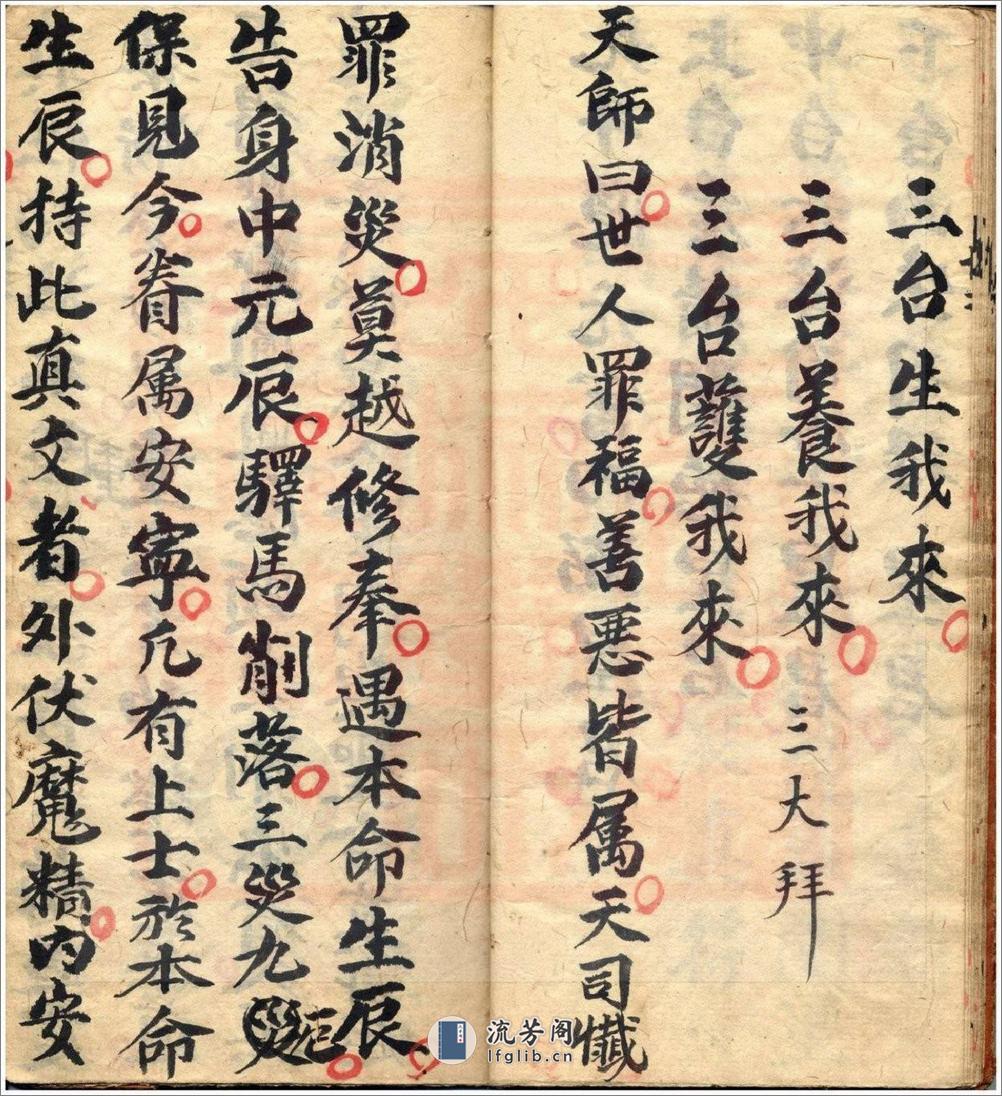 三台生我來
三台養我來 三大拜
三台護我來
天師曰世人罪福善惡皆属天司懺
罪消災莫越修奉遇本命生辰
告身中元辰驛馬削落三災九
保見今眷属安寧凢有上士於本命
生辰持此真文者外伏魔精内安
流芳阁
lfglib.cn